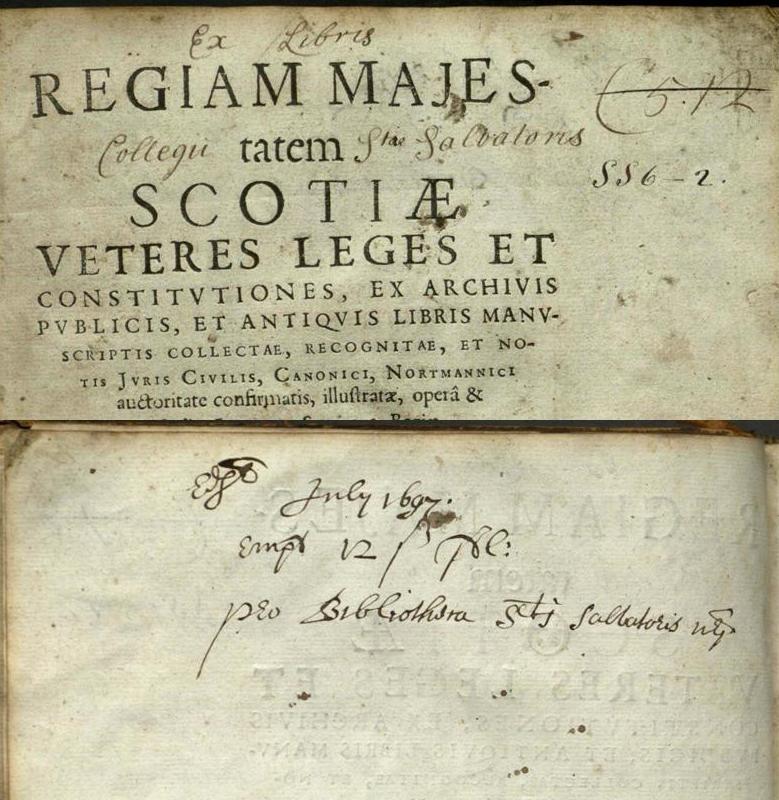 Ex Libris
REGIAM MAJES-
Collegii tatem Stae Salvatoris
C 5.12
SS6-2.
SCOTIÆ
VETERES LEGES ET
CONSTITVTIONES, EX ARCHIVIS
PVBLICIS, ET ANTIQVIS LIBRIS MANV-
SCRIPTIS COLLECTAE, RECOGNITAE, ET NO-
TIS JVRIS CIVILIS, CANONICI, NORTMANNICI
auctoritate confirmatis, illuſtratæ, operâ &
July 1697.
Empt 12
pro Bibliotheca Sti Salvatoris